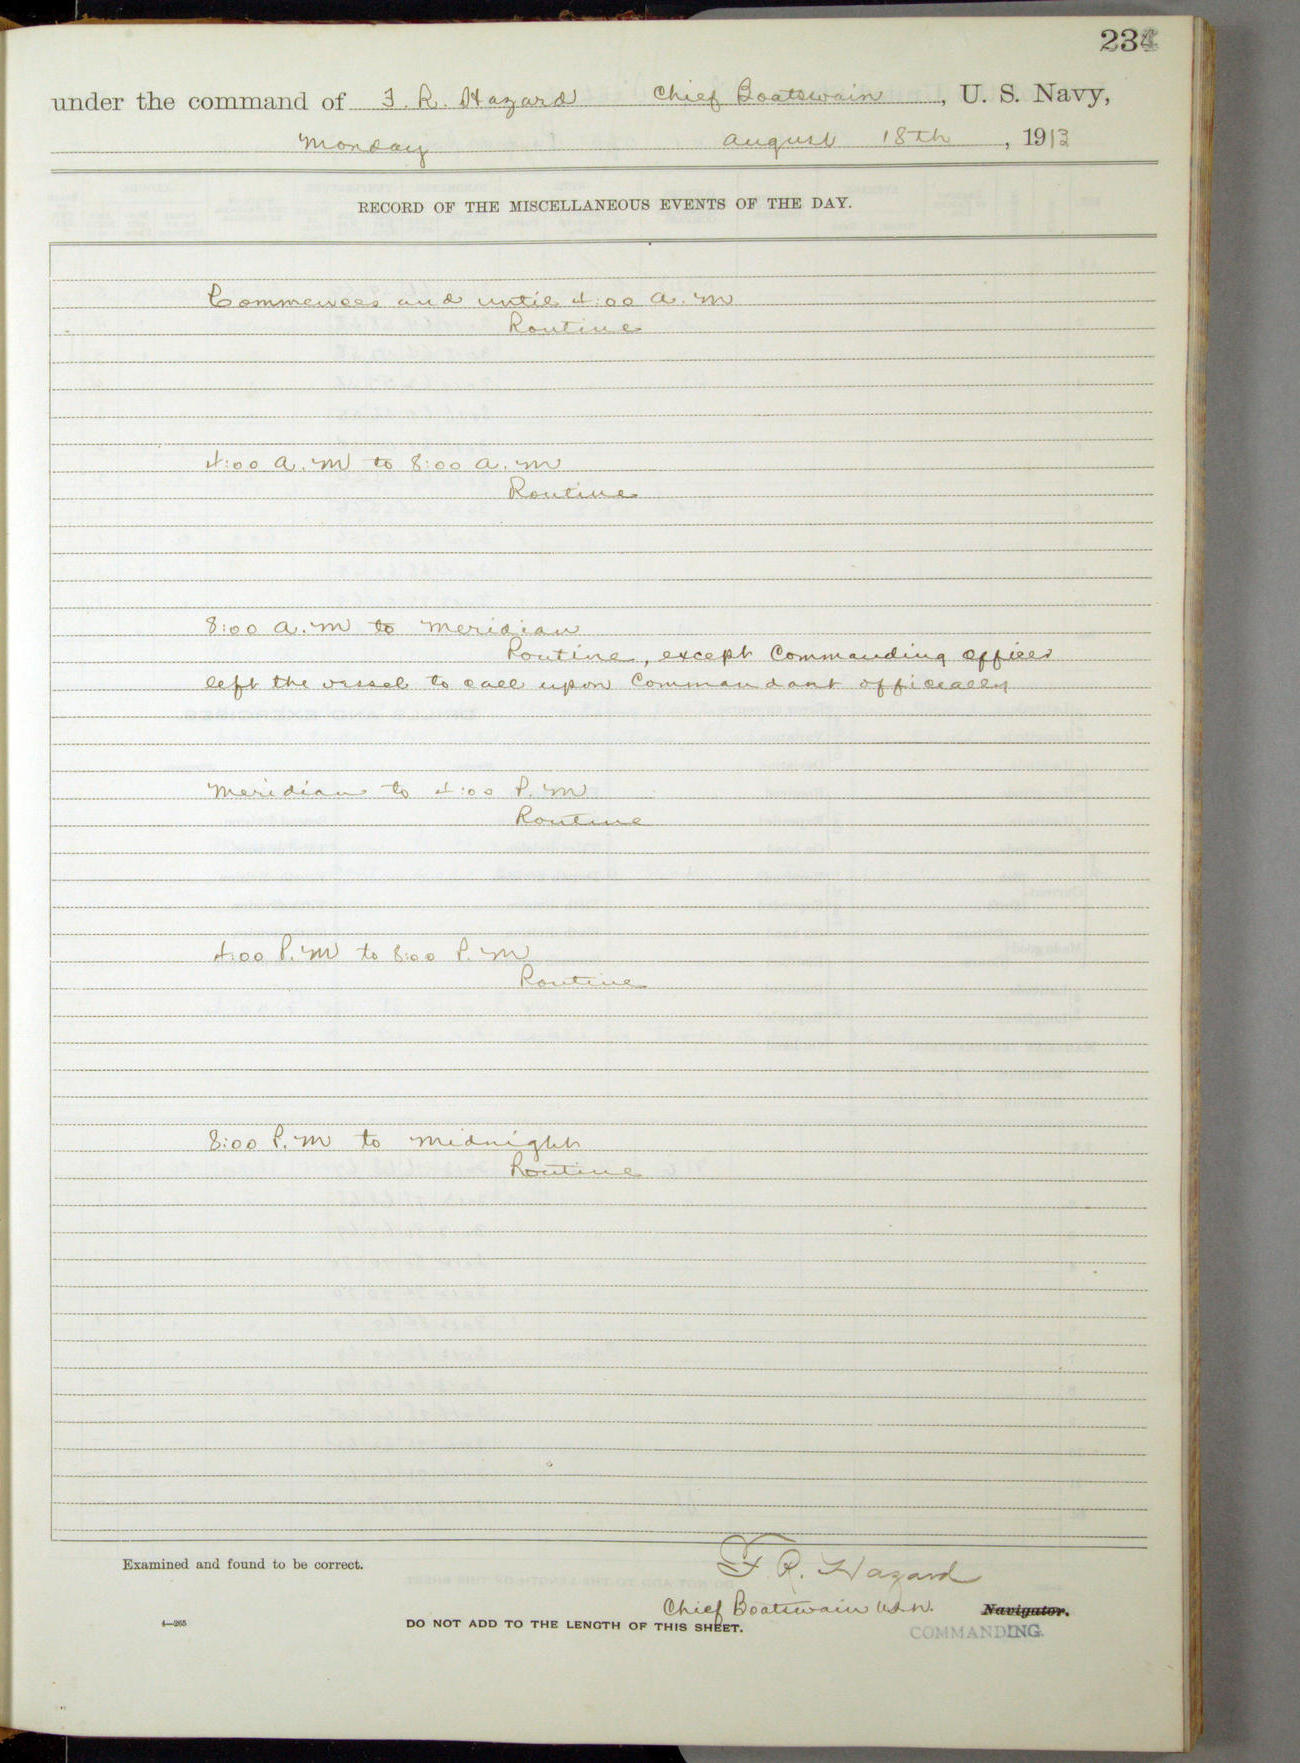 234
under the command of F. R. Hazard Chief Boatswain, U. S. Navy,
Monday August 18th, 1913
RECORD OF THE MISCELLANEOUS EVENTS OF THE DAY.
Commences and until 4:00 a.m
Routine
4:00 a.m to 8:00 a.m
Routine
8:00 a.m to meridian
Routine, except Commanding officer
left the vessel to call upon Commandant officially
Meridian to 4:00 P.M
Routine
4:00 P.M to 8:00 P.M
Routine
8:00 P.M to midnight
Routine
Examined and found to be correct.
F. R. Hazard
Chief Boatswain U.S.N. Navigator.
4—265 DO NOT ADD TO THE LENGTH OF THIS SHEET. COMMANDING.